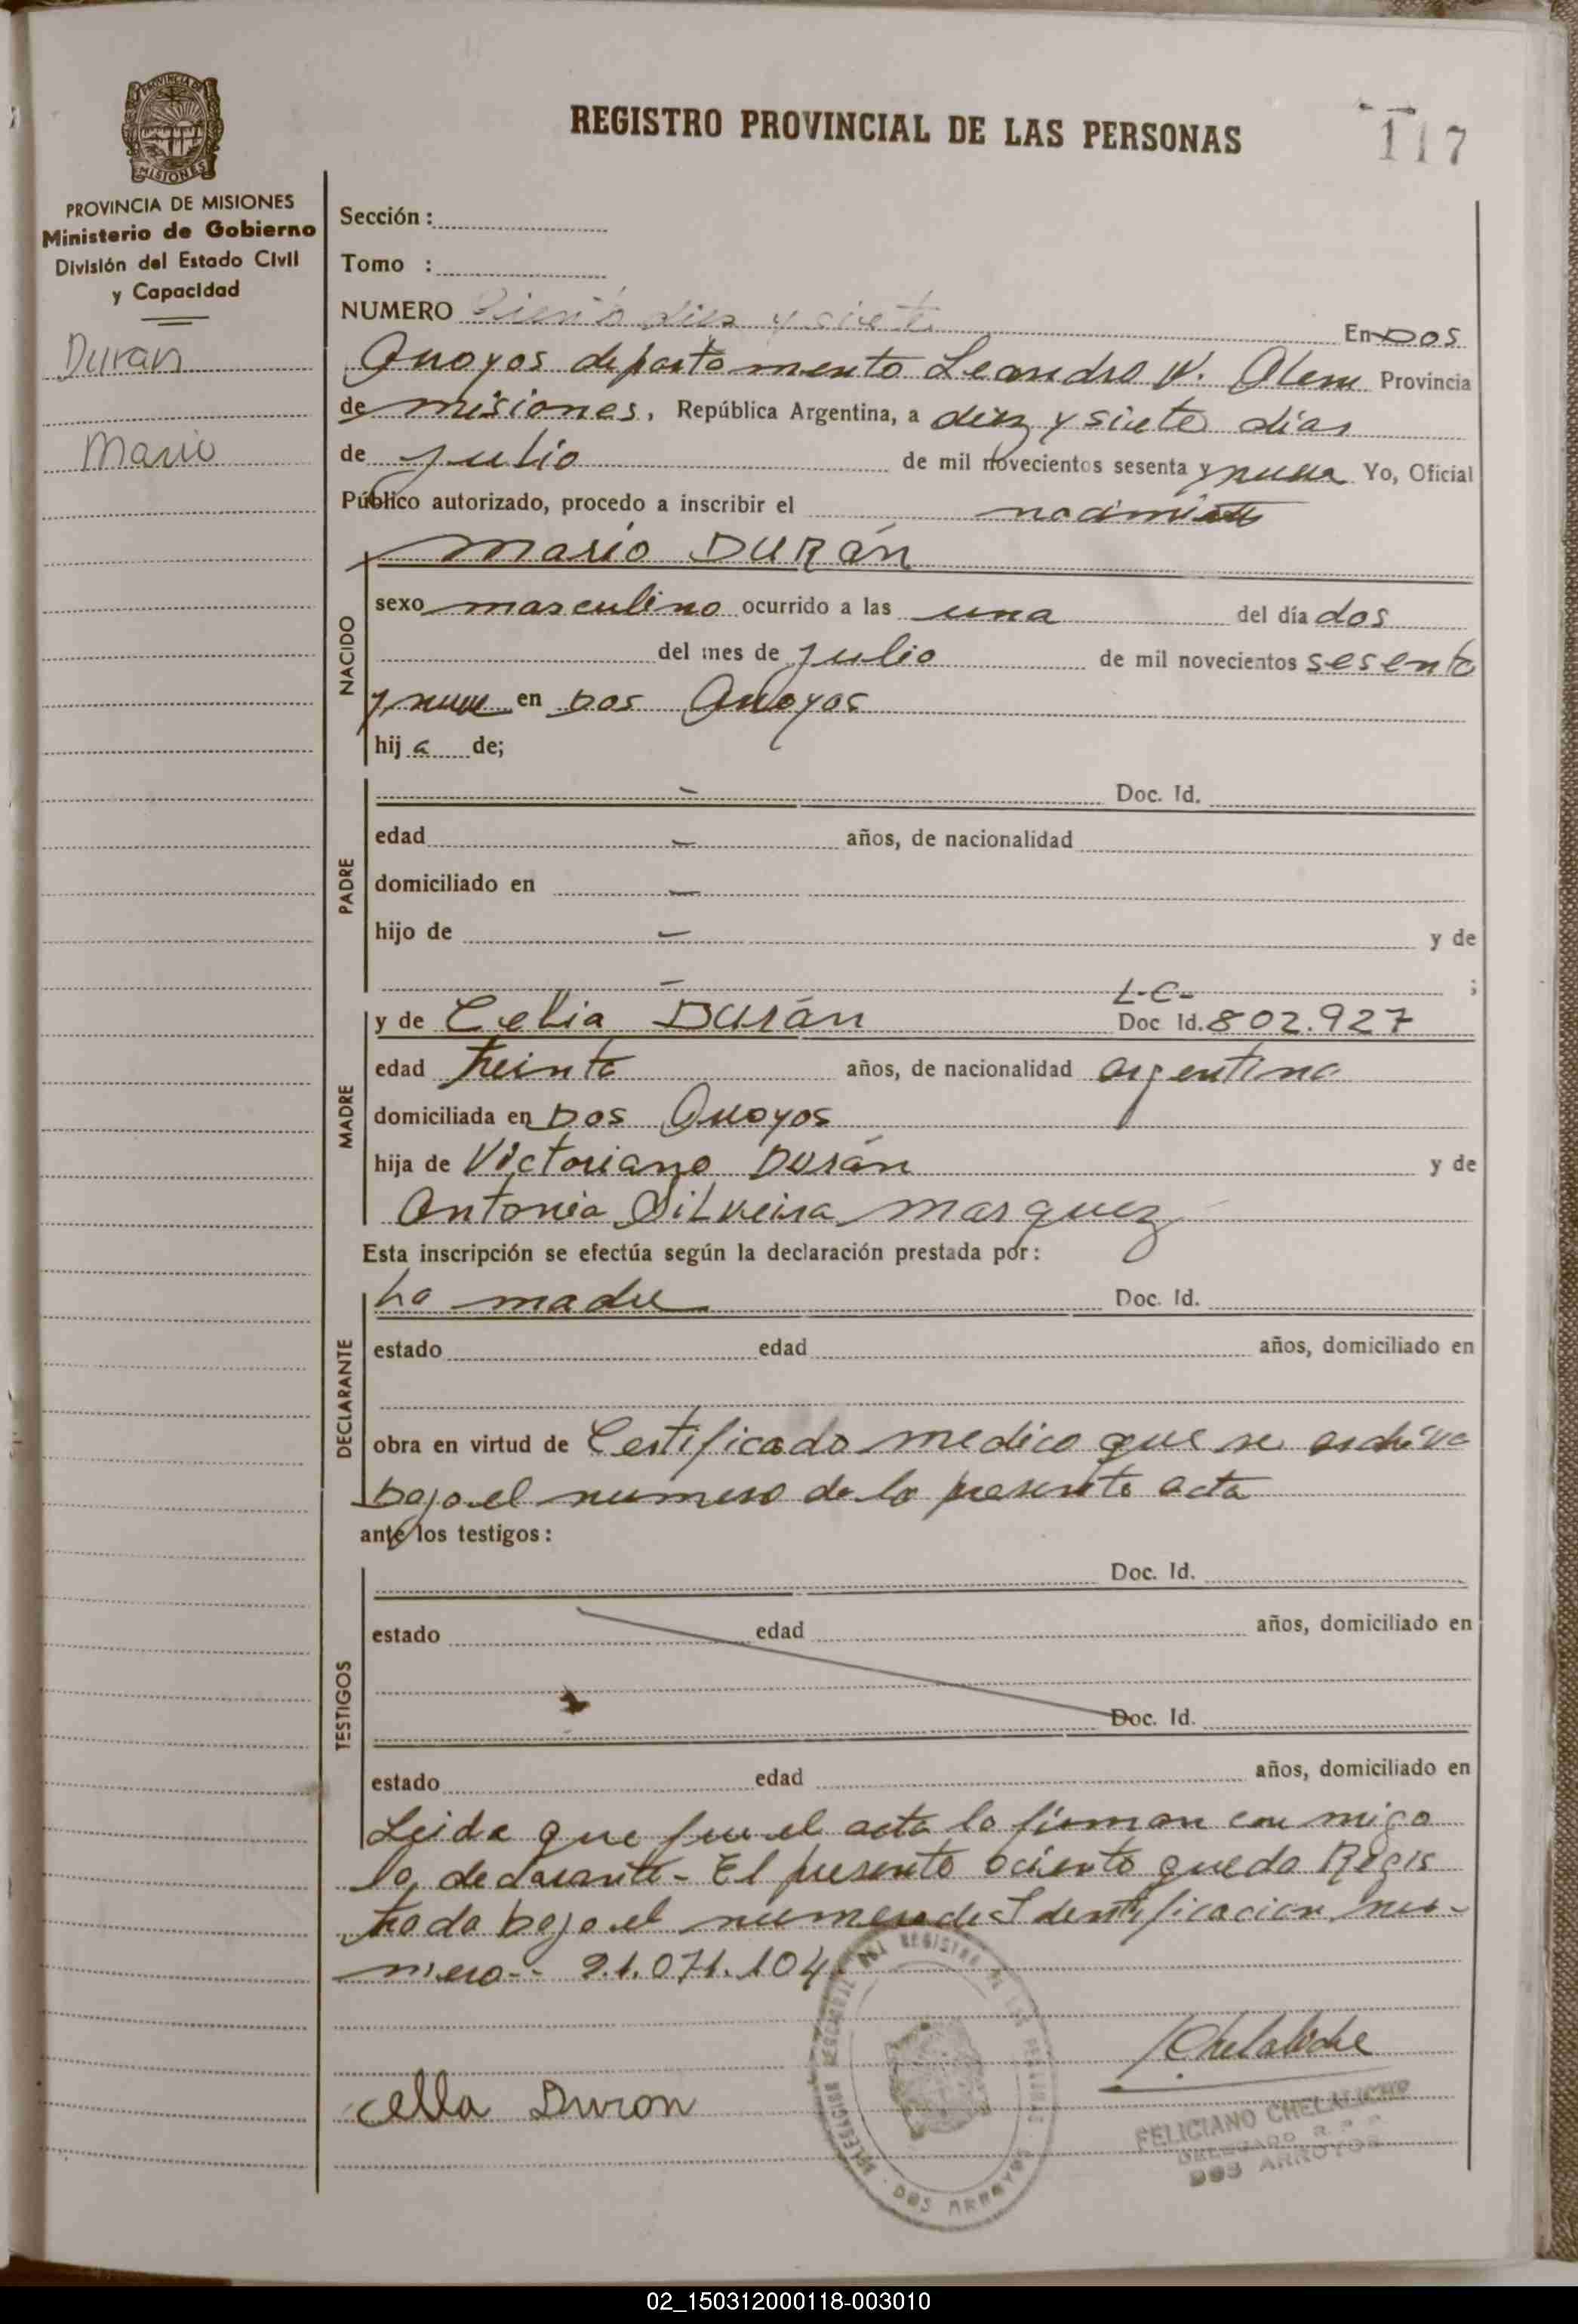 PROVINCIA DE
MISIONES
PROVINCIA DE MISIONES
Ministerio de Gobierno
División del Estado Civil
y Capacidad
Duran
Mario
REGISTRO PROVINCIAL DE LAS PERSONAS
117
Sección :
Tomo :
NUMERO Ciento diez y siete
En DOS
Arroyos departamento Leandro N. Alem Provincia
de misiones, República Argentina, a diez y siete días
de Julio de mil novecientos sesenta y nueve Yo, Oficial
Público autorizado, procedo a inscribir el nacimiento
NACIDO
Mario DURÁN
sexo masculino ocurrido a las una del día dos
del mes de Julio de mil novecientos sesenta
y nueve en Dos Arroyos
hij a de;
PADRE
— Doc. Id.
edad — años, de nacionalidad
domiciliado en —
hijo de — y de
— ;
MADRE
L.C.
y de Celia Durán Doc Id. 802.927
edad treinta años, de nacionalidad argentina
domiciliada en Dos Arroyos
hija de Victoriano Durán y de
Antonia Silveira Marquez
Esta inscripción se efectúa según la declaración prestada por :
DECLARANTE
La madre Doc. Id.
estado edad años, domiciliado en
obra en virtud de Certificado medico que se archiva
bajo el numero de la presente acta
ante los testigos :
TESTIGOS
Doc. Id.
estado edad años, domiciliado en
Doc. Id.
estado edad años, domiciliado en
Leida que fue el acta la firman con migo
la declarante - El presente aciento queda Regis
trado bajo el numero de Identificacion nu-
mero-- 21.071.104
Celia Duron
Chelaliche
FELICIANO CHELALICHE
DELEGADO R. P. P.
DOS ARROYOS
DEL REGISTRO DE LAS PERSONAS
DELEGACION
DOS ARROYOS
02_150312000118-003010